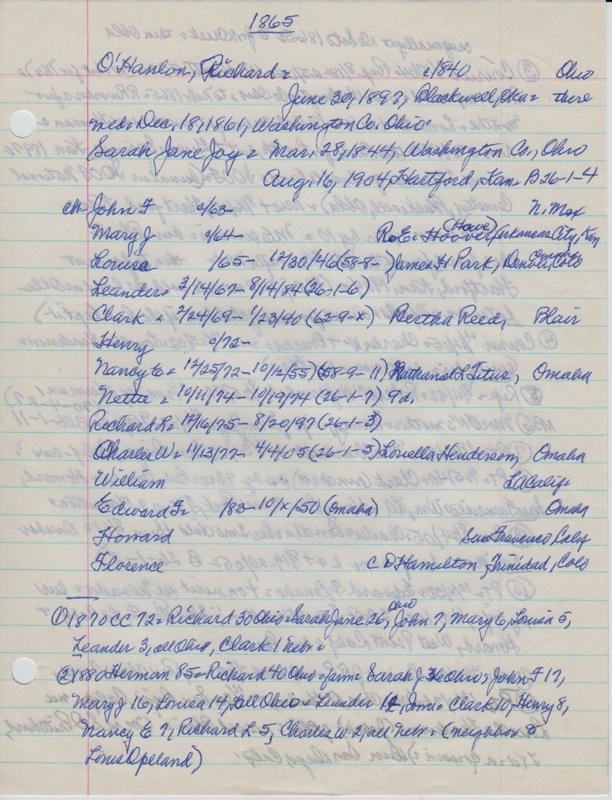 1865
O'Hanlon, Richard = c1840 Ohio
June 30, 1892, Blackwell, Oka = there
med = Dec, 18, 1861, Washington Co. Ohio =
Sarah Jane Joy = Mar. 28, 1844, Washington Co., Ohio
Aug. 16, 1904, Hartford, Kan = B 26-1-4
ch = John F c/63- N. Mex
Mary J c/64- R.E. Hoover, (Howe) Arkansas City, Kan
Louisa /65- 12/30/46 (58-8- ) James H Park, Denver, Colo
Leander = 3/14/67 - 8/14/84 (26-1-6)
Clark = 2/24/69 - 1/23/40 (62-9-x) Bertha Reed, Blair
Henry c/72-
Nancy E = 12/25/72 - 10/12/55 (58-9-11) Nathanal L Titus, Omaha
Nettie = 10/11/74 - 10/19/74 (26-1-7) 9d,
Richard L = 12/16/75 - 8/20/97 (26-1-3)
Charles W = 11/13/77 - 4/4/05 (26-1-5) Louella Henderson, Omaha
William La Calif
Edward F = /83 - 10/x/50 (Omaha) Omaha
Howard San Francisco, Calif
Florence C D Hamilton, Trinidad, Colo
① 1870 CC 72 = Richard 30 Ohio = Sarah Jane 26, Ohio John 7, Mary 6, Louisa 5,
Leander 3, all Ohio, Clark 1 Nebr =
② 1880 Herman 85 = Richard 40 Ohio = farm = Sarah J 36 Ohio = John F 17,
Mary J 16, Louisa 14, all Ohio = Leander 12, = Clark 10, Henry 8,
Nancy E 7, Richard L 5, Charles W 2, all Nebr = (neighbor to
Louis Opeland)